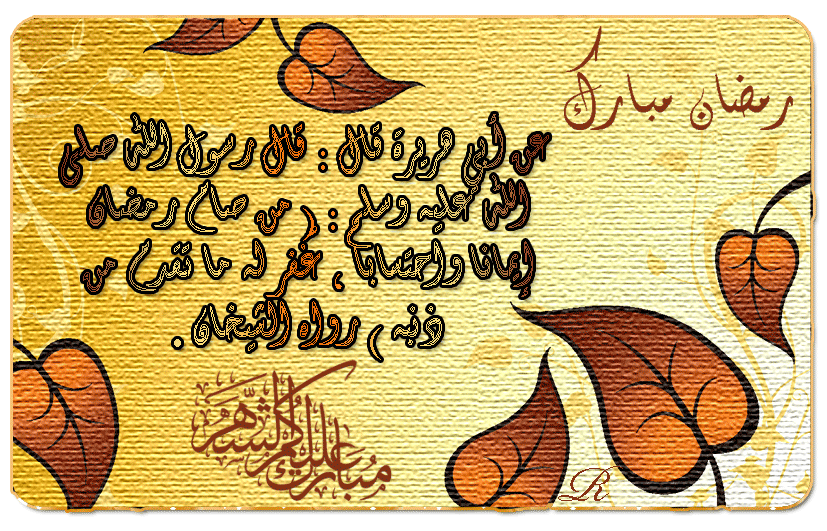 رمضان مبارك
عن أبي هريرة قال : قال رسول الله صلى
الله عليه وسلم : ( من صام رمضان
إيمانا واحتسابا ، غفر له ما تقدم من
ذنبه ) رواه الشيخان .
مبارك عليكم الشهر
R